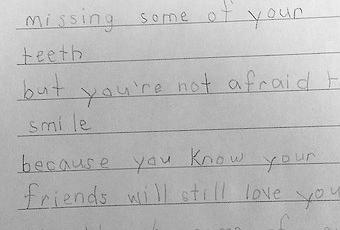 missing some of your
teeth
but you're not afraid
smile
because you know your
friends will still love you